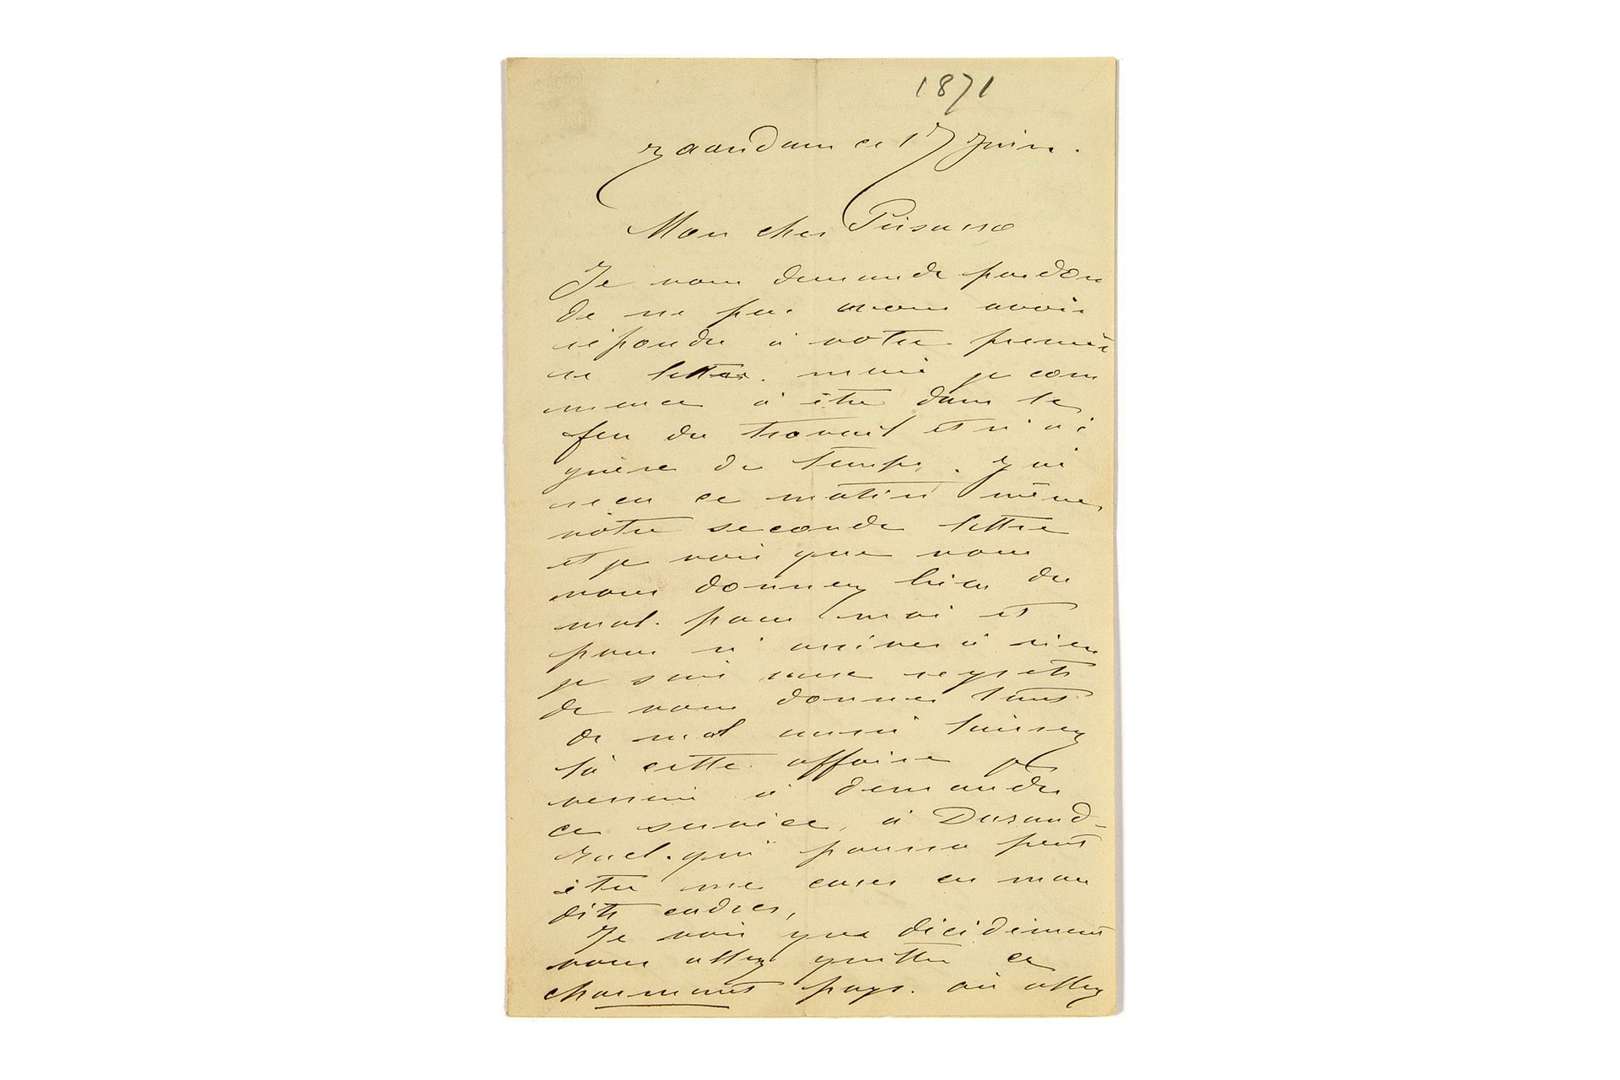 1871
Zaandam ce 17 Juin.
Mon cher Pissarro
Je vous demande pardon
de ne pas vous avoir
répondu à votre premiè
re lettre. mais je com
mence à être dans le
feu du travail et n'ai
guère de temps. J'ai
reçu ce matin même
votre seconde lettre
et je vois que vous
vous donnez bien du
mal. pour moi et
pour n'arriver à rien
je suis aux regrets
de vous donner tant
de mal aussi laissez
là cette affaire je
verrai à demander
ce service, à Durand-
Ruel. qui pourra peut
être me caser ces mau
dits cadres,
Je vois que décidément
vous allez quitter ce
charmant pays. où allez